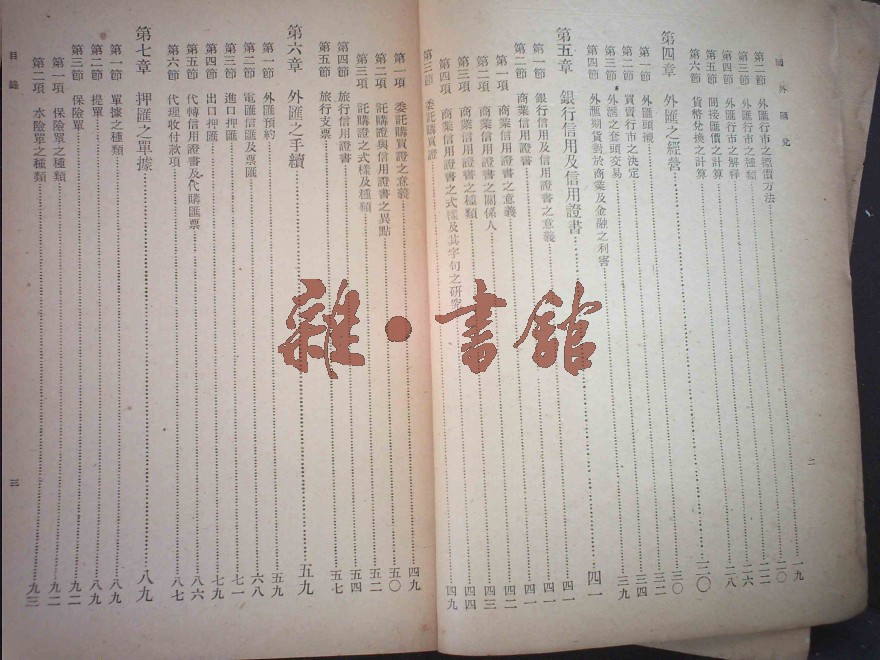 國外匯兌
二
第二節 外匯行市之標價方法 一九
第三節 外匯行市之種類 二〇
第四節 外匯行市之解釋 二二
第五節 間接匯價之計算 二六
第六節 貨幣兌換之計算 二八
第四章 外匯之經營 三〇
第一節 外匯頭襯 三〇
第二節 買賣行市之決定 三二
第三節 外匯之套頭交易 三四
第四節 外匯期貨對於商業及金融之利害 三九
第五章 銀行信用及信用證書 四一
第一節 銀行信用及信用證書之意義 四一
第二節 商業信用證書 四一
第一項 商業信用證書之意義 四一
第二項 商業信用證書之關係人 四二
第三項 商業信用證書之種類 四三
第四項 商業信用證書之式樣及其字句之研究 四四
第三節 委託購買證 四九
第一項 委託購買證之意義 四九
第二項 託購證與信用證書之異點 五〇
第三項 託購證之式樣及種類 五二
第四節 旅行信用證書 五四
第五節 旅行支票 五七
第六章 外匯之手續 五九
第一節 外匯預約 五九
第二節 電匯信匯及票匯 六八
第三節 進口押匯 七一
第四節 出口押匯 七二
第五節 代轉信用證書及代購匯票 八六
第六節 代理收付款項 八七
第七章 押匯之單據 八九
第一節 單據之種類 八九
第二節 提單 八九
第三節 保險單 九二
第一項 保險單之種類 九二
第二項 水險單之種類 九三
目錄
三
雜•書館